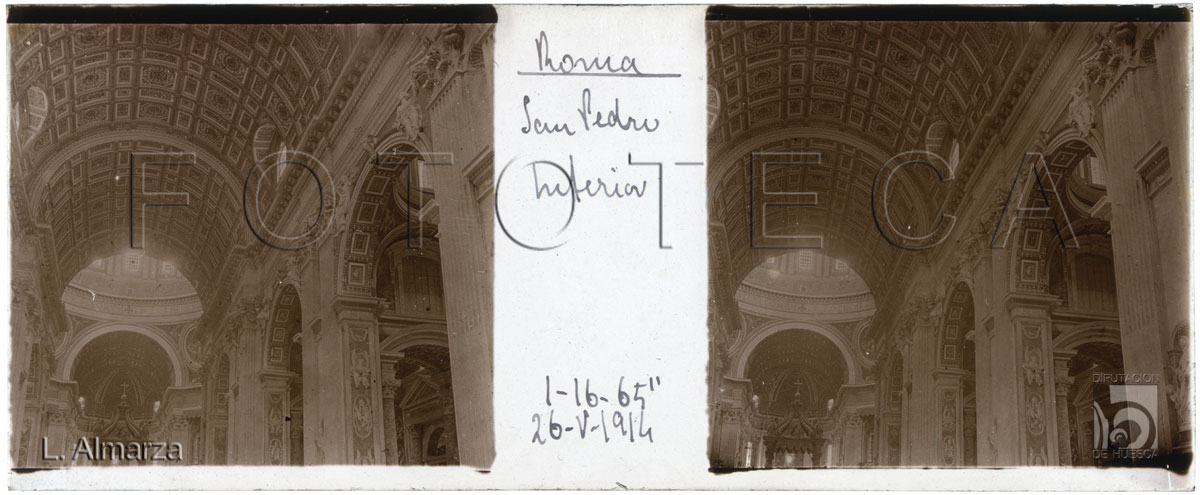 Roma
San Pedro
Interior
FOTOTECA
1-16-65"
26-V-1914
L. Almarza
DIPUTACION
DE HUESCA